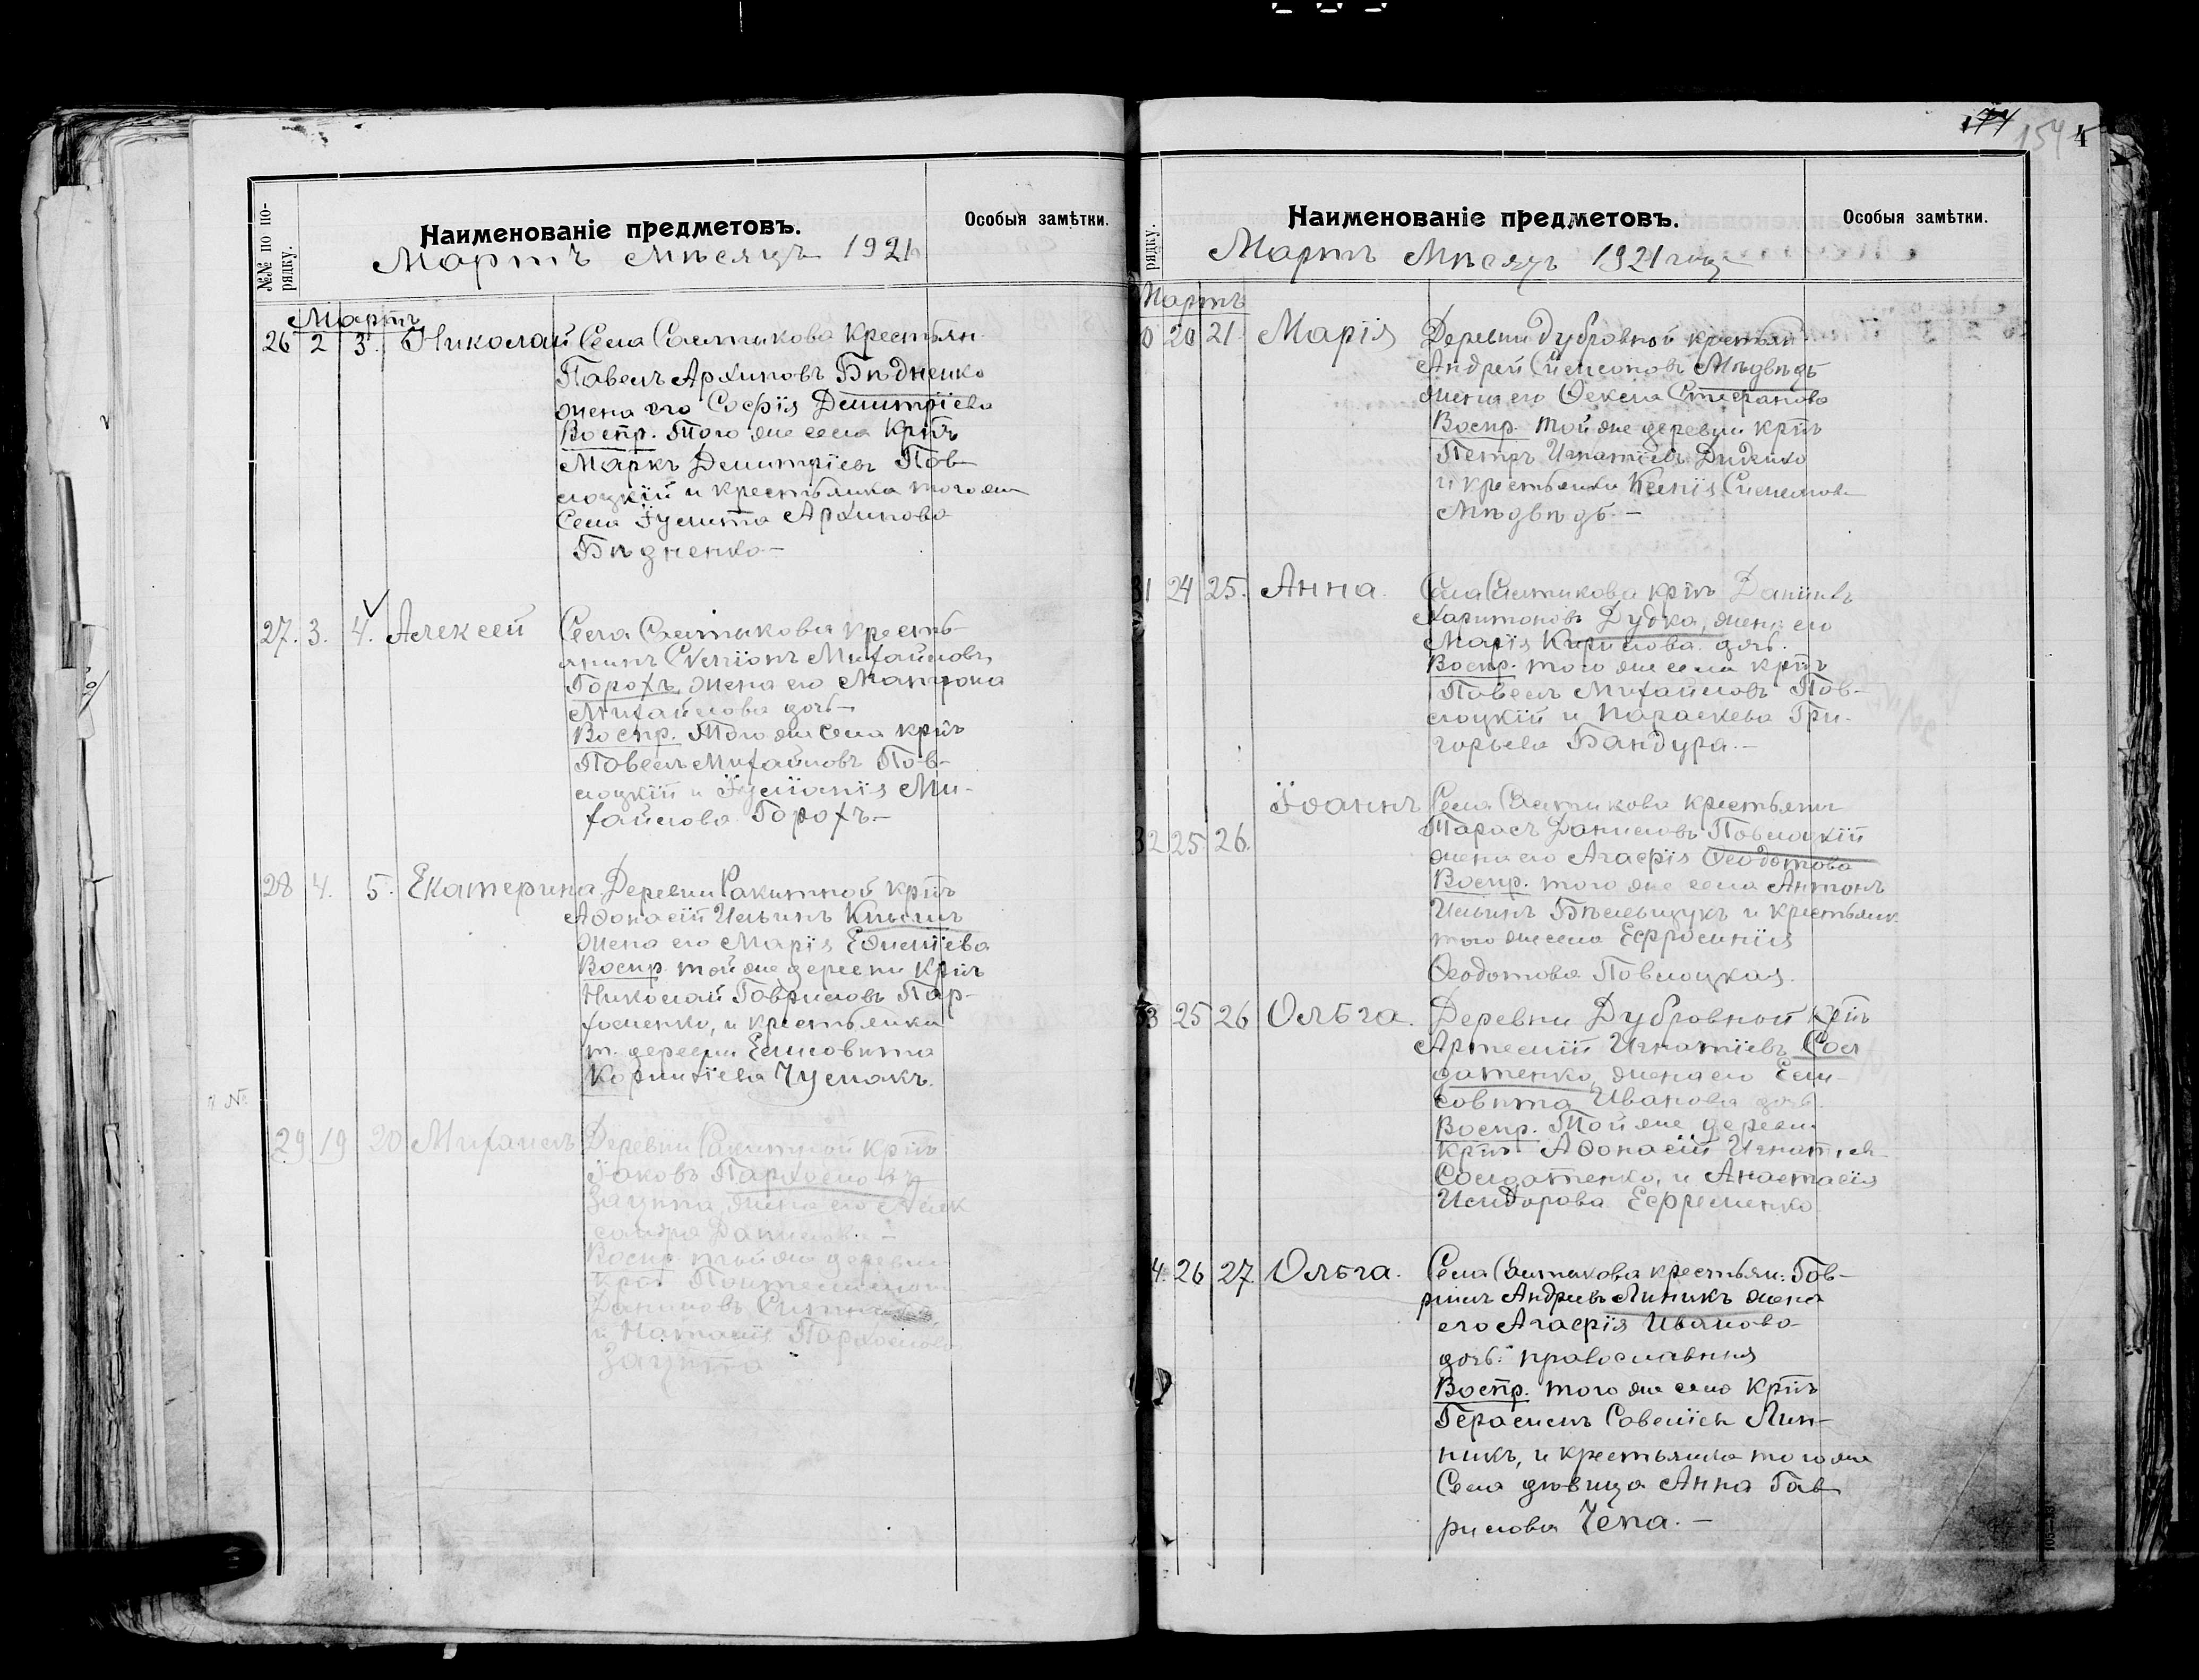 174 154 4
№№ по по-
рядку.
Наименованіе предметовъ.
Особыя замѣтки.
Мартъ Мѣсяцъ 1921
Мартъ
26 2 3. Николай Села Салтыкова Крестьян.
Павелъ Архиповъ Бѣдненко
жена его Софія Димитріева
Воспр. Того же села Кр̃нъ
Маркъ Димитріевъ Пов-
лоцкій и крестьянка того же
Села Іулитта Архипова
Бѣдненко-
27. 3. 4. Алексей Села Салтыкова кресть-
янинъ Сѵмеонъ Михайловъ
Горохъ, жена его Матрона
Михайлова дочь
Воспр. Того же Села кр̃нъ
Павелъ Михайловъ Пов-
лоцкій и Іуліанія Ми-
хайлова Горохъ.-
28 4. 5. Екатерина Деревни Ракитной кр̃нъ
Аѳонасій Ильинъ
жена его Марія Еѳиміева
Воспр. той же деревни Кр̃нъ
Николай Гавриловъ Пар-
хоменко, и крестьянка
т. деревни Елисовета
Корнилієва Чумакъ.
29 19 20 Михаилъ Деревни Ракитной Кр̃нъ
Іаковъ Пархомовъ
Заупта, жена его Алек
сандра Данилова -
Воспр. той же деревни
Кр̃нъ Пантелеимон
Даниловъ
и Наталія Пархомова
Заупта
рядку.
Наименованіе предметовъ.
Особыя замѣтки.
Мартъ Мѣсяцъ 1921 года
Мартъ
0 20 21. Марія Деревни Дубровной крестьян
Андрей Сімеоновъ Мѣдвѣдь
жена его Ѳекла Стефанова
Воспр. той же деревни кр̃нъ
Петръ Игнатіевъ Диденко
и крестьянка Ксенія Симеонова
Мѣдвѣдь.-
31 24 25. Анна. Села Салтыкова кр̃нъ Даніилъ
Харитоновъ Дудка, жена его
Марія Кирилова дочь.
Воспр. того же села кр̃нъ
Павелъ Михайловъ Пов-
лоцкій и Параскева Гри-
горьева Бандура.-
32 25 26. Іоаннъ Села Салтыкова крестьянъ
Тарасъ Даниловъ Повлоцкій
жена его Агафія Ѳеодотова
Воспр. того же села Антонъ
Ильинъ Бѣлевщукъ и крестьянк
того же села Ефросинія
Ѳеодотова Повлоцкая.
33 25 26 Ольга. Деревни Дубровной Кр̃нъ
Артемій Игнатіевъ Сол
датенко, жена его Ели-
совета Иванова дочь.
Воспр. Той же деревн.
Кр̃нъ Аѳонасій Игнатіев
Солдатенко, и Анастасія
Исидорова Ефременко
4. 26 27. Ольга. Села Салтыкова крестьян: Гав-
риилъ Андреевъ Линникъ жена
его Агафія Иванова
дочь: православныя
Воспр. того же села Кр̃нъ
Герасимъ Савеліев Лин-
никъ, и крестьянка того же
Села дѣвица Анна Гав
рилова Чепа.-